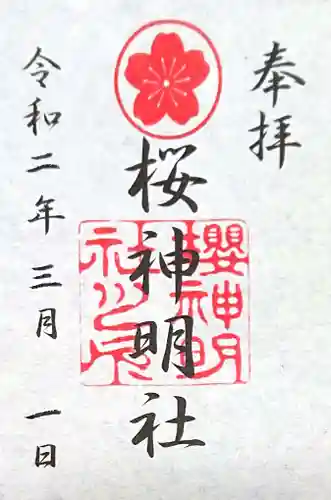 奉拝
桜神明社
櫻神明
令和二年三月一日